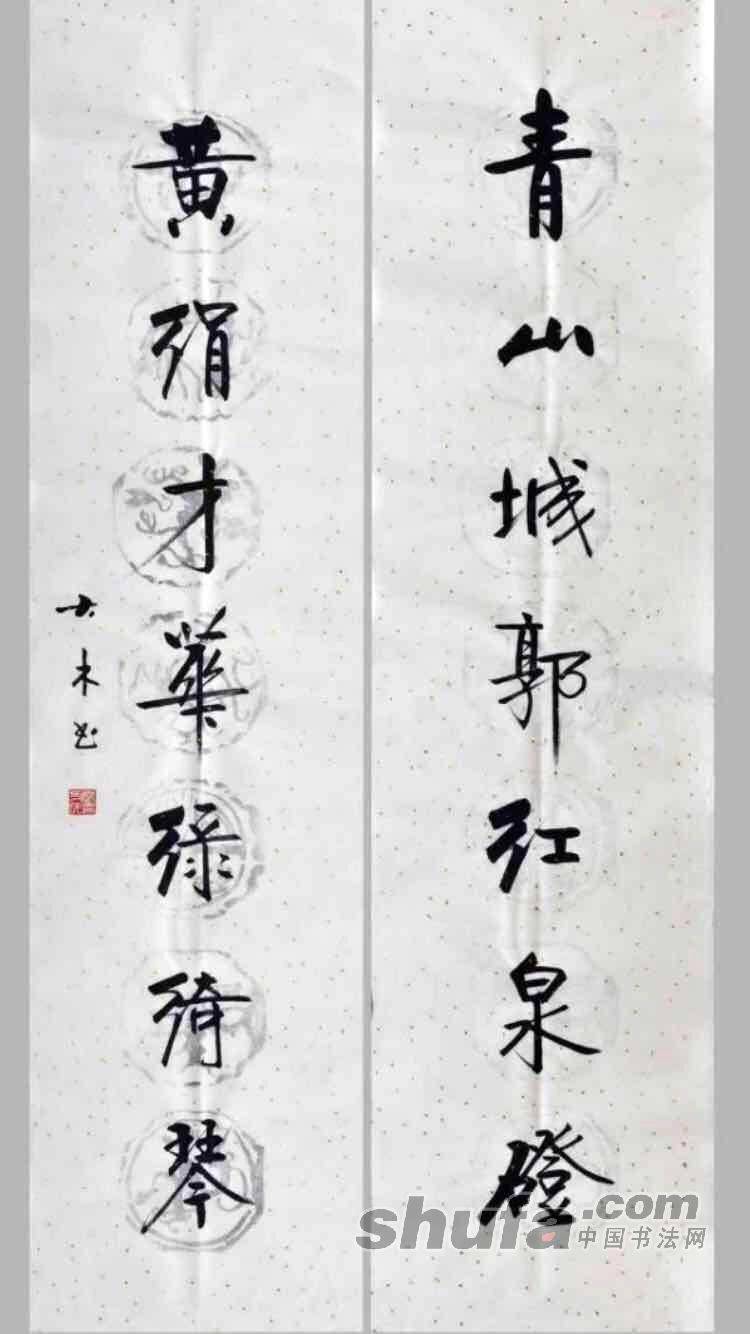 青山城郭红泉磴
黄绢才華绿绮琴
大木书
shufa.com
中国书法网